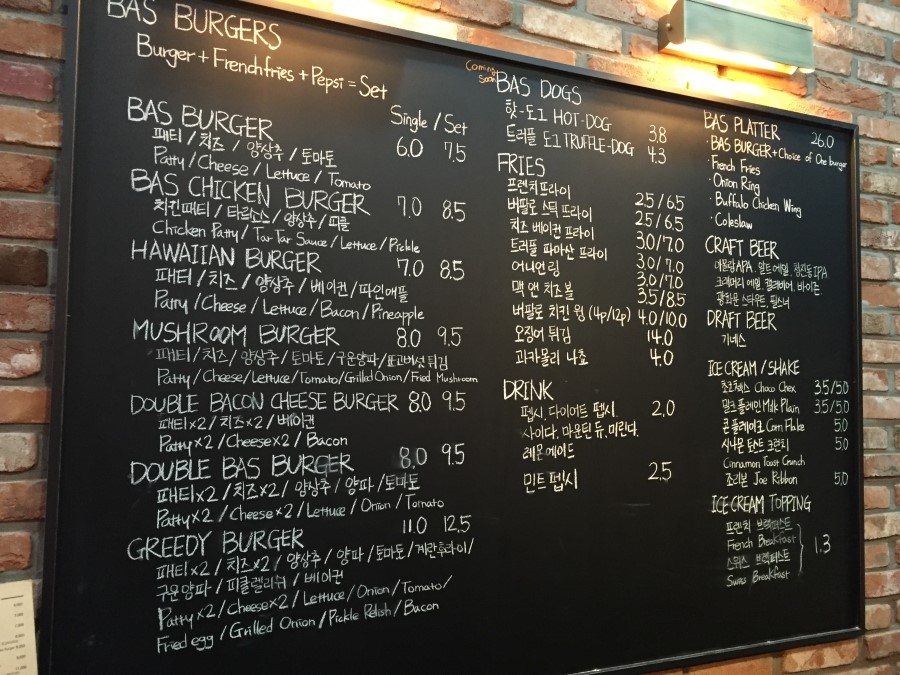 BAS BURGERS
Burger + Frenchfries + Pepsi = Set
Single / Set
BAS BURGER 6.0 7.5
패티 / 치즈 / 양상추 / 토마토
Patty / Cheese / Lettuce / Tomato
BAS CHICKEN BURGER 7.0 8.5
치킨패티 / 타르소스 / 양상추 / 피클
Chicken Patty / Tar Tar Sauce / Lettuce / Pickle
HAWAIIAN BURGER 7.0 8.5
패티 / 치즈 / 양상추 / 베이컨 / 파인애플
Patty / Cheese / Lettuce / Bacon / Pineapple
MUSHROOM BURGER 8.0 9.5
패티 / 치즈 / 양상추 / 토마토 / 구운양파 / 표고버섯 튀김
Patty / Cheese / Lettuce / Tomato / Grilled Onion / Fried Mushroom
DOUBLE BACON CHEESE BURGER 8.0 9.5
패티x2 / 치즈x2 / 베이컨
Pattyx2 / Cheesex2 / Bacon
DOUBLE BAS BURGER 8.0 9.5
패티x2 / 치즈x2 / 양상추 / 양파 / 토마토
Pattyx2 / Cheesex2 / Lettuce / Onion / Tomato
GREEDY BURGER 11.0 12.5
패티x2 / 치즈x2 / 양상추 / 양파 / 토마토 / 계란후라이 /
구운양파 / 피클렐리쉬 / 베이컨
Pattyx2 / Cheesex2 / Lettuce / Onion / Tomato /
Fried egg / Grilled Onion / Pickle Relish / Bacon
Coming Soon
BAS DOGS
핫-도그 HOT-DOG 3.8
트러플 도그 TRUFFLE-DOG 4.3
FRIES
프렌치프라이 2.5 / 6.5
버팔로 스틱 프라이 2.5 / 6.5
치즈 베이컨 프라이 3.0 / 7.0
트러플 파마산 프라이 3.0 / 7.0
어니언링 3.0 / 7.0
맥 앤 치즈 볼 3.5 / 8.5
버팔로 치킨 윙 (4p/12p) 4.0 / 10.0
오징어 튀김 14.0
과카몰리 나쵸 4.0
DRINK
펩시, 다이어트 펩시, 2.0
사이다, 마운틴 듀, 미린다,
레몬에이드
민트 펩시 2.5
BAS PLATTER 26.0
· BAS BURGER + Choice of One burger
· French Fries
· Onion Ring
· Buffalo Chicken Wing
· Coleslaw
CRAFT BEER
APA, 몰트에일, IPA
에일, 바이젠,
광화문 스타우트, 필스너
DRAFT BEER
기네스
ICE CREAM / SHAKE
초코첵스 Choco Chex 3.5 / 5.0
밀크 플레인 Milk Plain 3.5 / 5.0
콘 플레이크 Corn Flake 5.0
시나몬 토스트 크런치 5.0
Cinnamon Toast Crunch
조리본 Joe Ribbon 5.0
ICE CREAM TOPPING
프렌치 브렉퍼스트
French Breakfast
1.3
스위스 브렉퍼스트
Swiss Breakfast